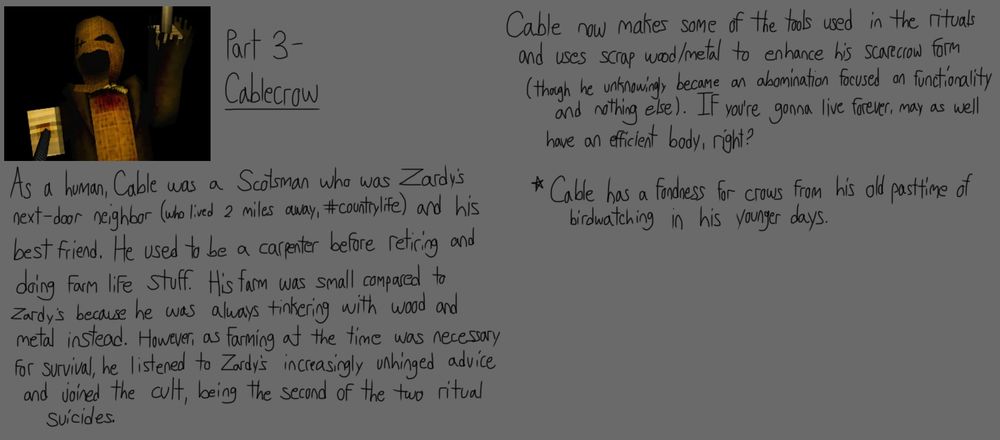 Part 3-
Cablecrow
As a human, Cable was a Scotsman who was Zardy's
next-door neighbor (who lived 2 miles away, #countrylife) and his
best friend. He used to be a carpenter before retiring and
doing farm life stuff. His farm was small compared to
Zardy's because he was always tinkering with wood and
metal instead. However, as farming at the time was necessary
for survival, he listened to Zardy's increasingly unhinged advice
and joined the cult, being the second of the two ritual
suicides.
Cable now makes some of the tools used in the rituals
and uses scrap wood/metal to enhance his scarecrow form
(though he unknowingly became an abomination focused on functionality
and nothing else). If you're gonna live forever, may as well
have an efficient body, right?
* Cable has a fondness for crows from his old pasttime of
birdwatching in his younger days.